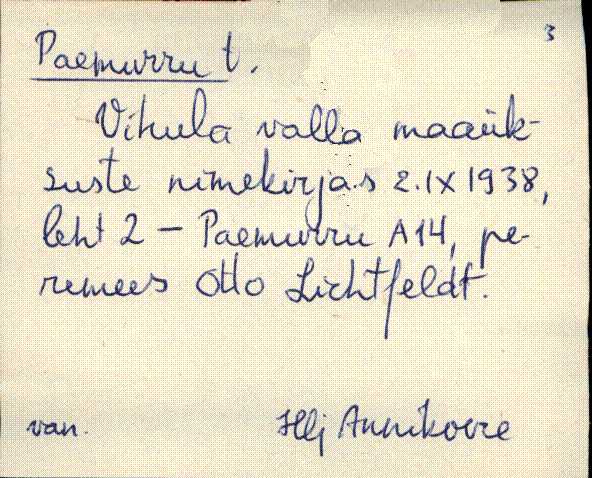 3
Paemurru t.
Vihula valla maaük-
suste nimekirjas 2.IX 1938,
leht 2 – Paemurru A14, pe-
remees Otto Lichtfeldt.
van. Hlj Annikovre